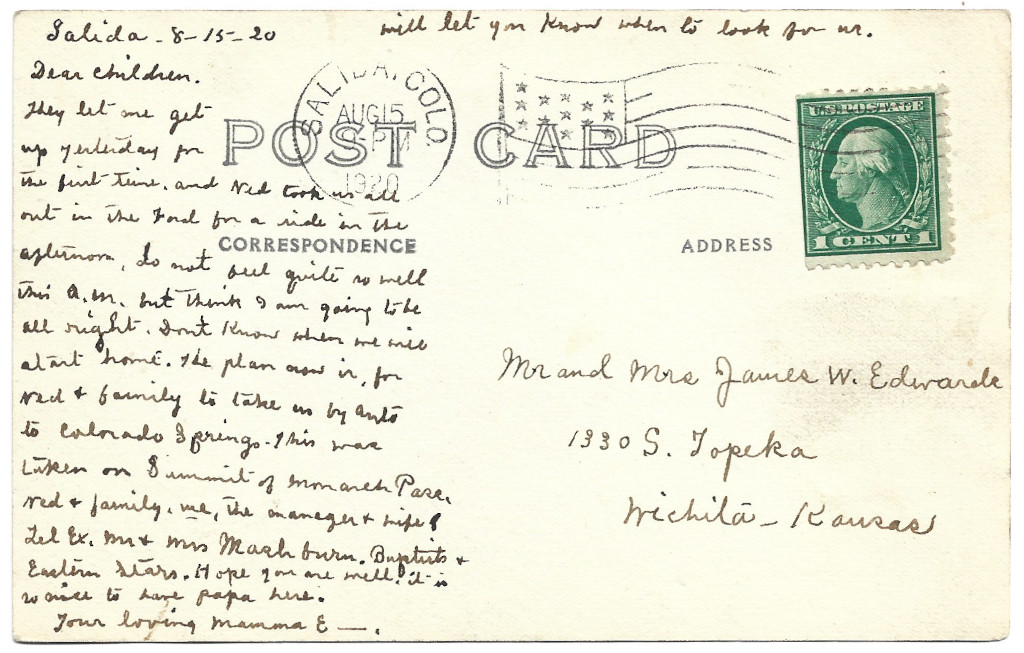 Salida - 8-15-20
will let you Know when to look for us.
Dear children.
They let me get
up yesterday for
the first time. and Ned took us all
out in the Ford for a ride in the
afternoon, do not feel quite so well
this A.M. but think I am going to be
all right. Don't Know when we will
start home. The plan now is, for
Ned & family to take us by Auto
to Colorado Springs. This was
taken on Summit of Monarch Pass.
Ned & family, me, the manager & wife of
Tel Ex. Mr & Mrs Mashburn. Baptists &
Eastern Stars. Hope you are well. it is
so nice to have papa here.
Your loving Mamma E —.
SALIDA, COLO.
AUG 15
PM
1920
POST CARD
CORRESPONDENCE
ADDRESS
U.S. POSTAGE
1 CENT 1
Mr and Mrs James W. Edwards
1330 S. Topeka
Wichita - Kansas